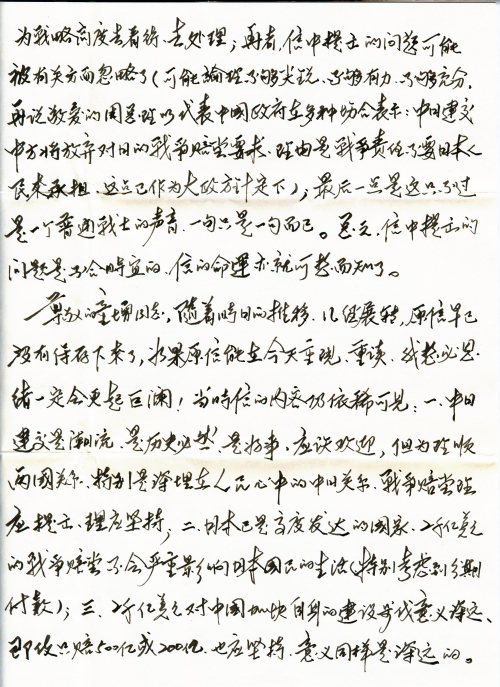 为战略高度去看待、去处理；再者，信中提出的问题可能
被有关方面忽略了（可能论理不够尖锐、不够有力、不够充分，
再说敬爱的周总理以代表中国政府在多种场合表示：中日建交
中方将放弃对日的战争赔偿要求、理由是战争责任不要日本人
民来承担，这点已作为大政方针定下）；最后一点是这只不过
是一个普通战士的声音、一句只是一句而已。总之，信中提出的
问题是不合时宜的、信的命运亦就可想而知了。
尊敬的童增同志，随着时日的推移、几经展转，原信早已
没有保存下来了，如果原信能在今天重现、重读、我想必思
绪一定会更起巨澜！当时信的内容仍依稀可见：一、中日
建交是潮流、是历史必然、是好事、应该欢迎，但为理顺
两国关系、特别是深埋在人民心中的中日关系、战争赔偿理
应提出、理应坚持；二、日本已是高度发达的国家、2千亿美元
的战争赔偿不会严重影响日本国民的生活（特别考虑到分期
付款）；三、2千亿美元对中国加快自身的建设步伐意义深远、
即使只赔500亿或200亿、也应坚持、意义同样是深远的。